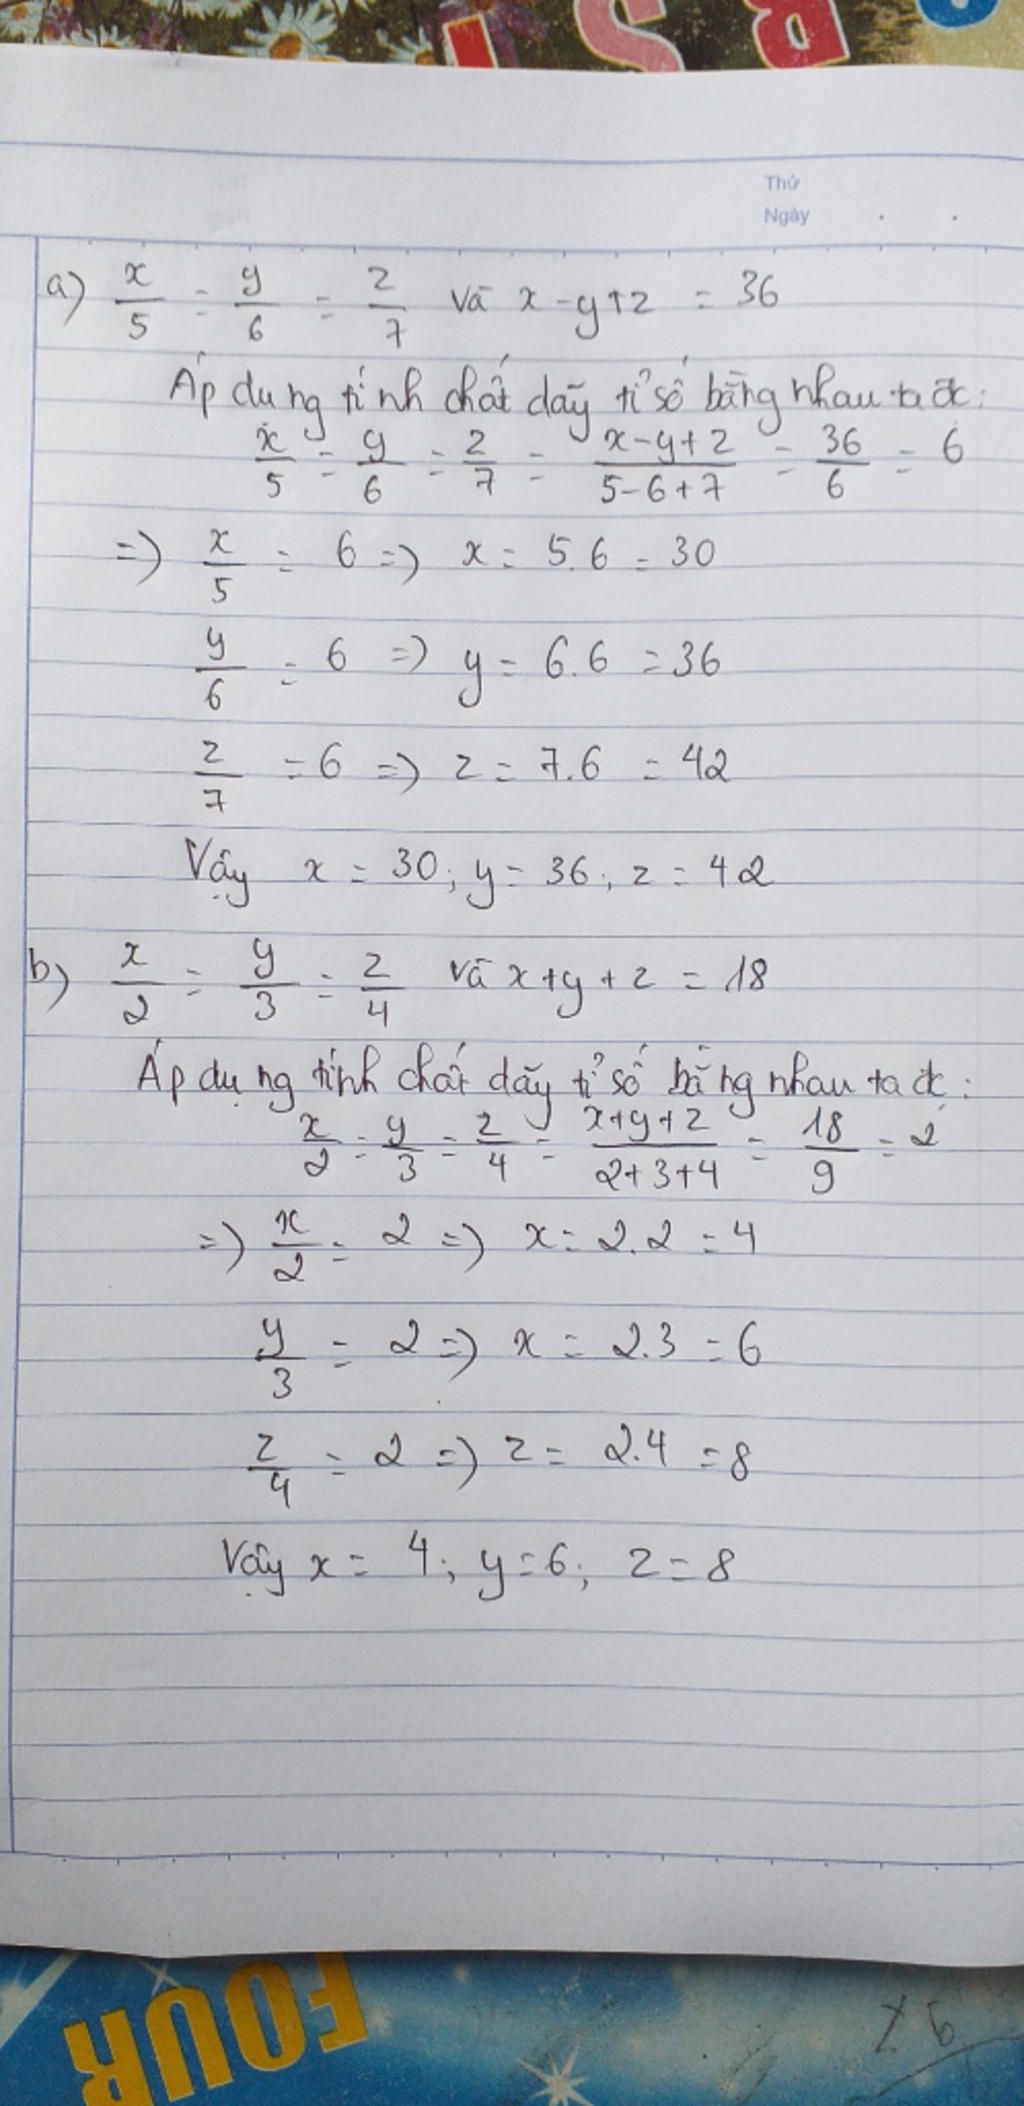 R S T
Thứ
Ngày
a) x/5 = y/6 = z/7 và x - y + z = 36
Áp dụng tính chất dãy tỉ số bằng nhau ta đc:
x/5 = y/6 = z/7 = (x-y+z)/(5-6+7) = 36/6 = 6
=) x/5 = 6 =) x = 5.6 = 30
y/6 = 6 =) y = 6.6 = 36
z/7 = 6 =) z = 7.6 = 42
Vậy x = 30; y = 36; z = 42
b) x/2 = y/3 = z/4 và x + y + z = 18
Áp dụng tính chất dãy tỉ số bằng nhau ta đc:
x/2 = y/3 = z/4 = (x+y+z)/(2+3+4) = 18/9 = 2
=) x/2 = 2 =) x = 2.2 = 4
y/3 = 2 =) x = 2.3 = 6
z/4 = 2 =) z = 2.4 = 8
Vậy x = 4; y = 6; z = 8
FOUR